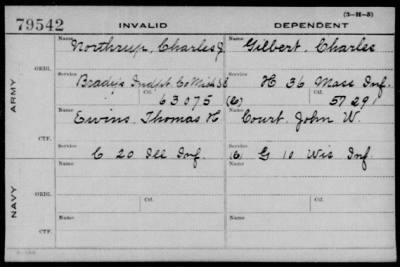 (3-H-3)
79542 INVALID DEPENDENT
ARMY
NAVY
ORIG.
CTF.
ORIG.
CTF.
Name Northrup, Charles J. Name Gilbert, Charles
Service Brady's Indpt. Co Mich S S Ctf. Service H 36 Mass Inf. Ctf.
63075 (C) 57291
Name Ewins, Thomas H Name Court, John W.
Service C 20 Ill Inf. Service (C) G 10 Wis Inf.
Name Name
Service Ctf. Service Ctf.
Name Name
Service Service